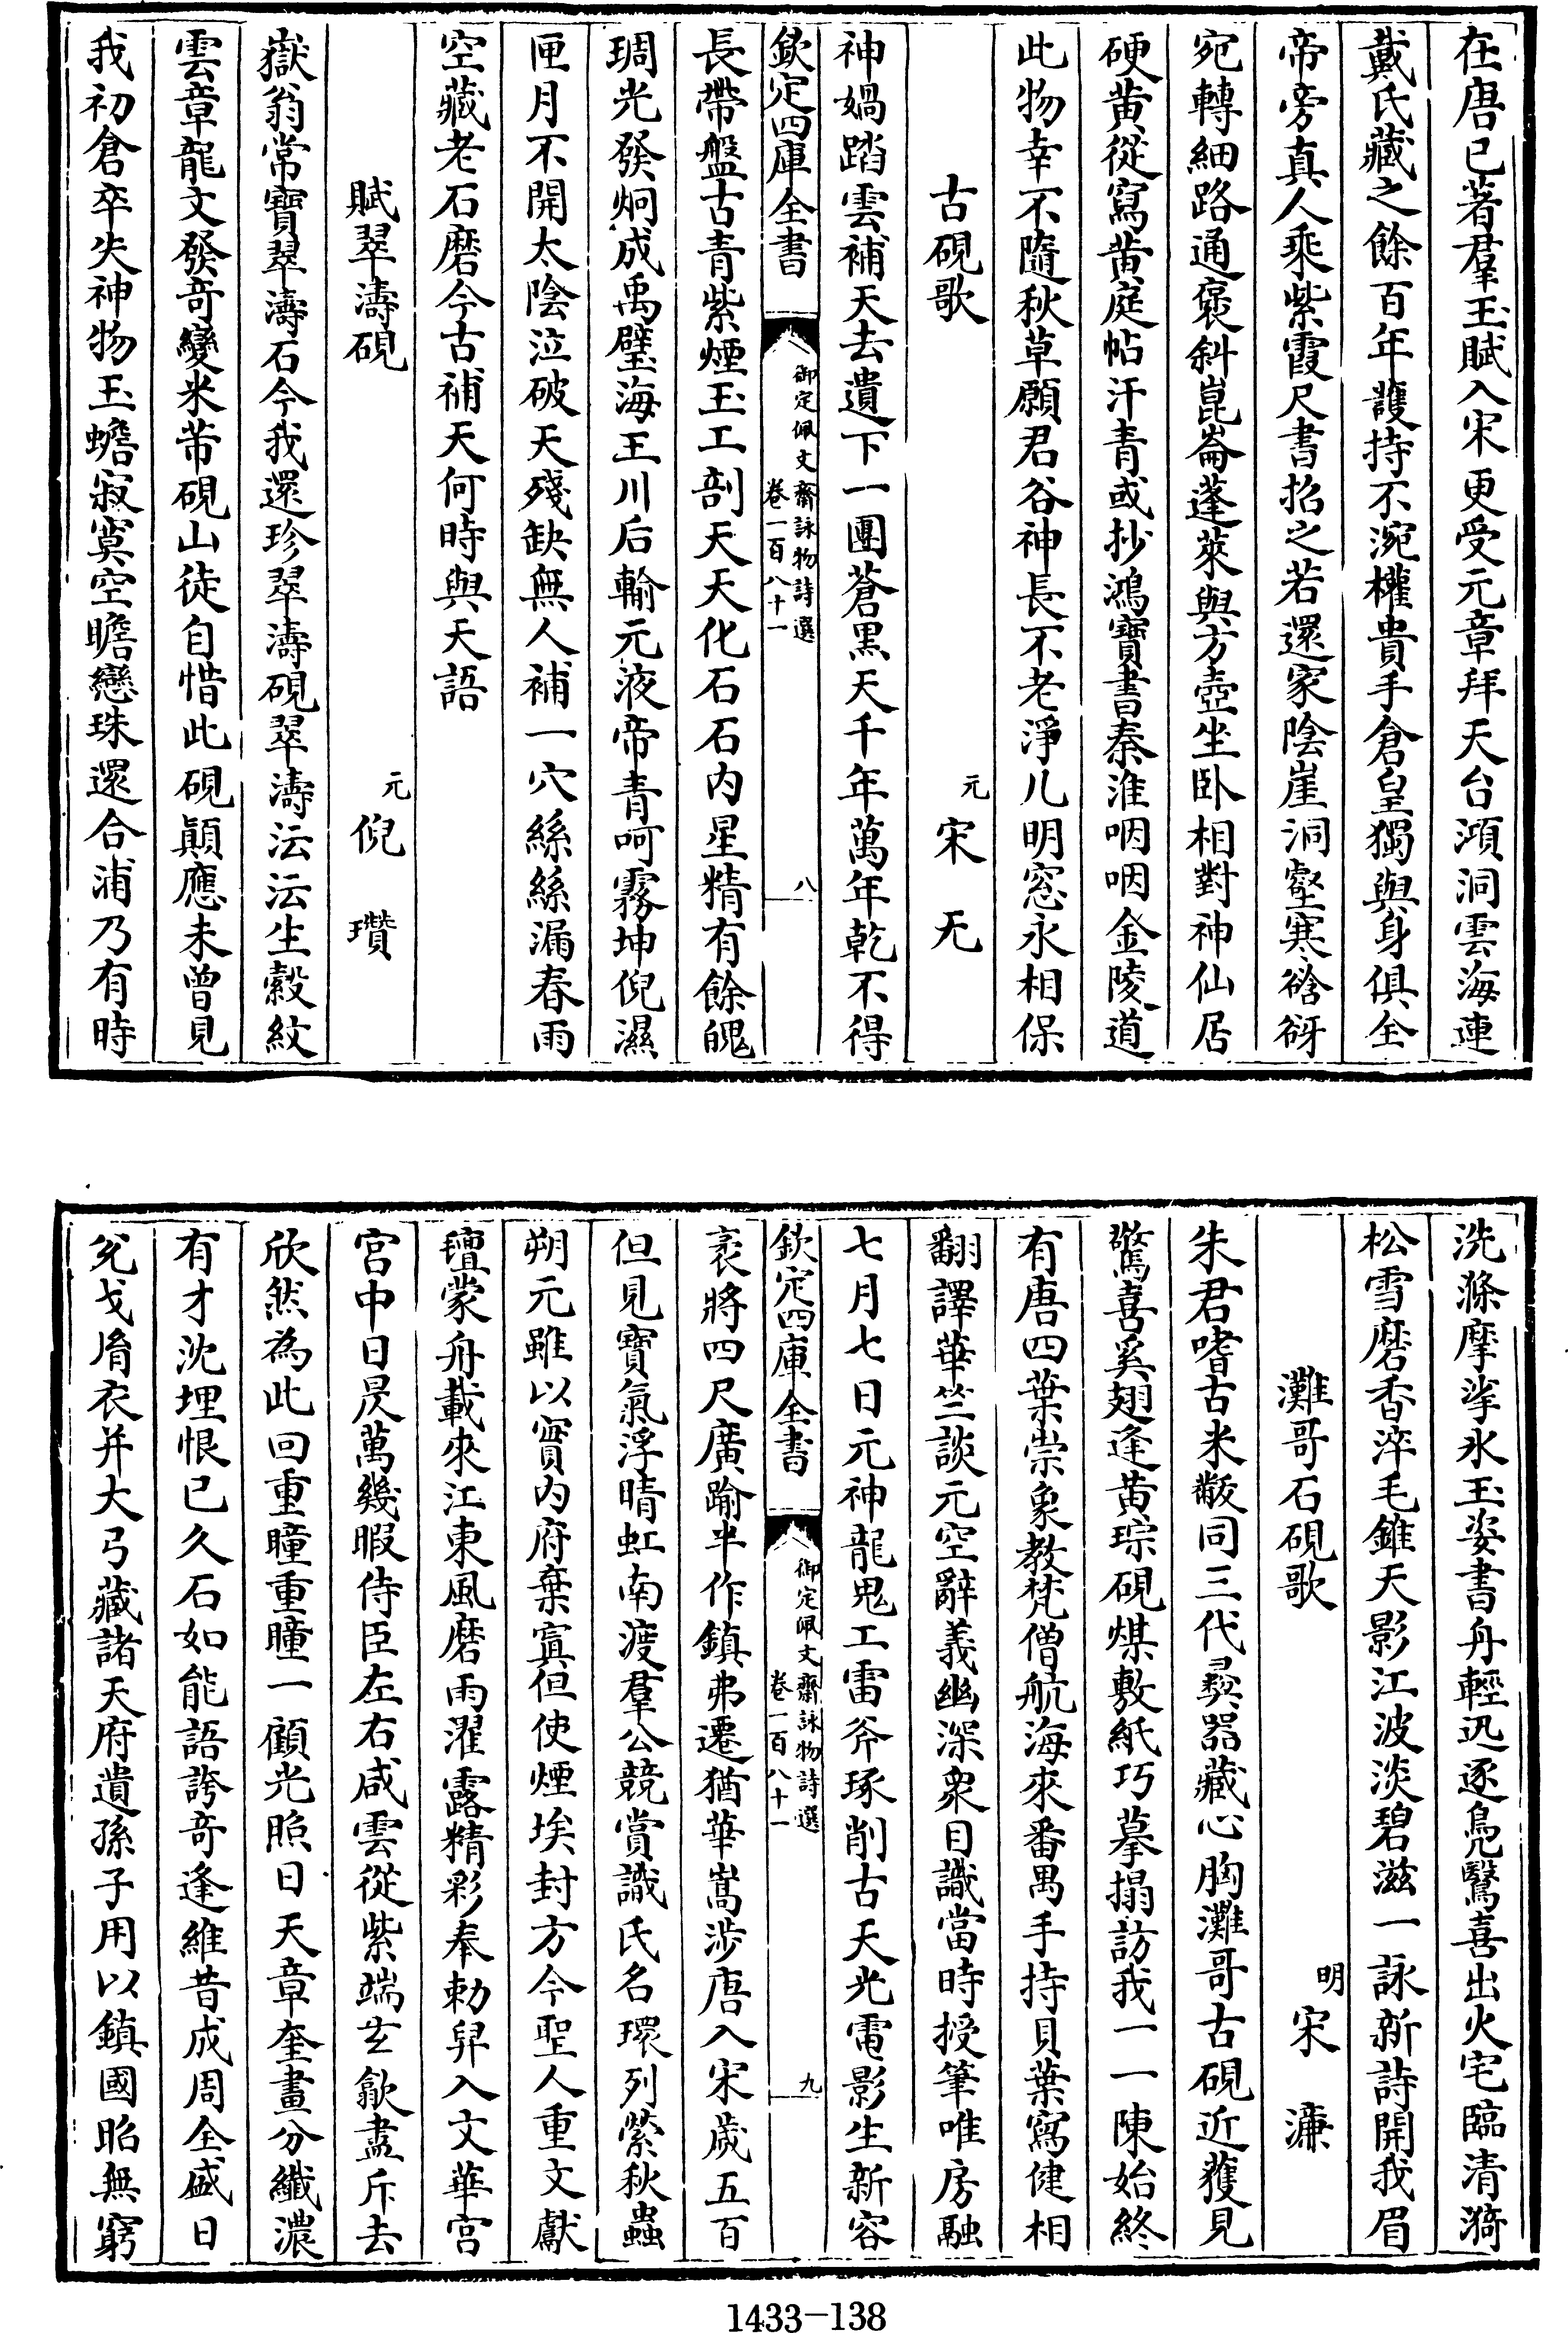 在唐已著羣玉賦入宋更受元章拜天台澒洞雲海連
戴氏藏之餘百年護持不涴權貴手倉皇獨與身俱全
帝旁真人乘紫霞尺書招之若還家陰崖洞壑寒谽谺
宛轉細路通褒斜崑崙蓬萊與方壺坐卧相對神仙居
硬黄從寫黄庭帖汗青或抄鴻寶書秦淮咽咽金陵道
此物幸不隨秋草願君谷神長不老淨几明窓永相保
古硯歌 元 宋 无
神媧踏雲補天去遺下一團蒼黒天千年萬年乾不得
欽定四庫全書 御定佩文齋詠物詩選 卷一百八十一 八
長帶盤古青紫煙玉工剖天天化石石内星精有餘魄
琱光發炯成禹璧海王川后輸元液帝青呵霧坤倪濕
匣月不開太陰泣破天殘缺無人補一穴絲絲漏春雨
空藏老石磨今古補天何時與天語
賦翠濤硯 元 倪 瓚
嶽翁常寶翠濤石今我還珍翠濤硯翠濤沄沄生縠紋
雲章龍文發奇變米芾硯山徒自惜此硯顛應未曾見
我初倉卒失神物玉蟾寂寞空瞻戀珠還合浦乃有時
洗滌摩挲氷玉姿書舟輕迅逐鳧鷖喜出火宅臨清漪
松雪磨香淬毛錐天影江波淡碧滋一詠新詩開我眉
灘哥石硯歌 明 宋 濂
朱君嗜古米黻同三代彛器藏心胸灘哥古硯近蒦見
驚喜奚翅逢黄琮硯煤敷紙巧摹搨訪我一一陳始終
有唐四葉崇象教梵僧航海來番禺手持貝葉寫健相
翻譯華竺談元空辭義幽深衆目識當時授筆唯房融
七月七日元神龍鬼工雷斧琢削古天光電影生新容
欽定四庫全書 御定佩文齋詠物詩選 卷一百八十一 九
袤將四尺廣踰半作鎮弗遷猶華嵩涉唐入宋歲五百
但見寶氣浮晴虹南渡羣公競賞識氏名環列縈秋蟲
朔元雖以實内府棄寘但使煙埃封方今聖人重文獻
氊蒙舟載來江東風磨雨濯露精彩奉勅舁入文華宫
宫中日昃萬幾暇侍臣左右咸雲從紫端玄歙盡斥去
欣然為此回重瞳重瞳一顧光照日天章奎畫分纖濃
有才沈埋恨已久石如能語誇奇逢維昔成周全盛日
兊戈胤衣并大弓藏諸天府遺孫子用以鎮國昭無窮
1433-138